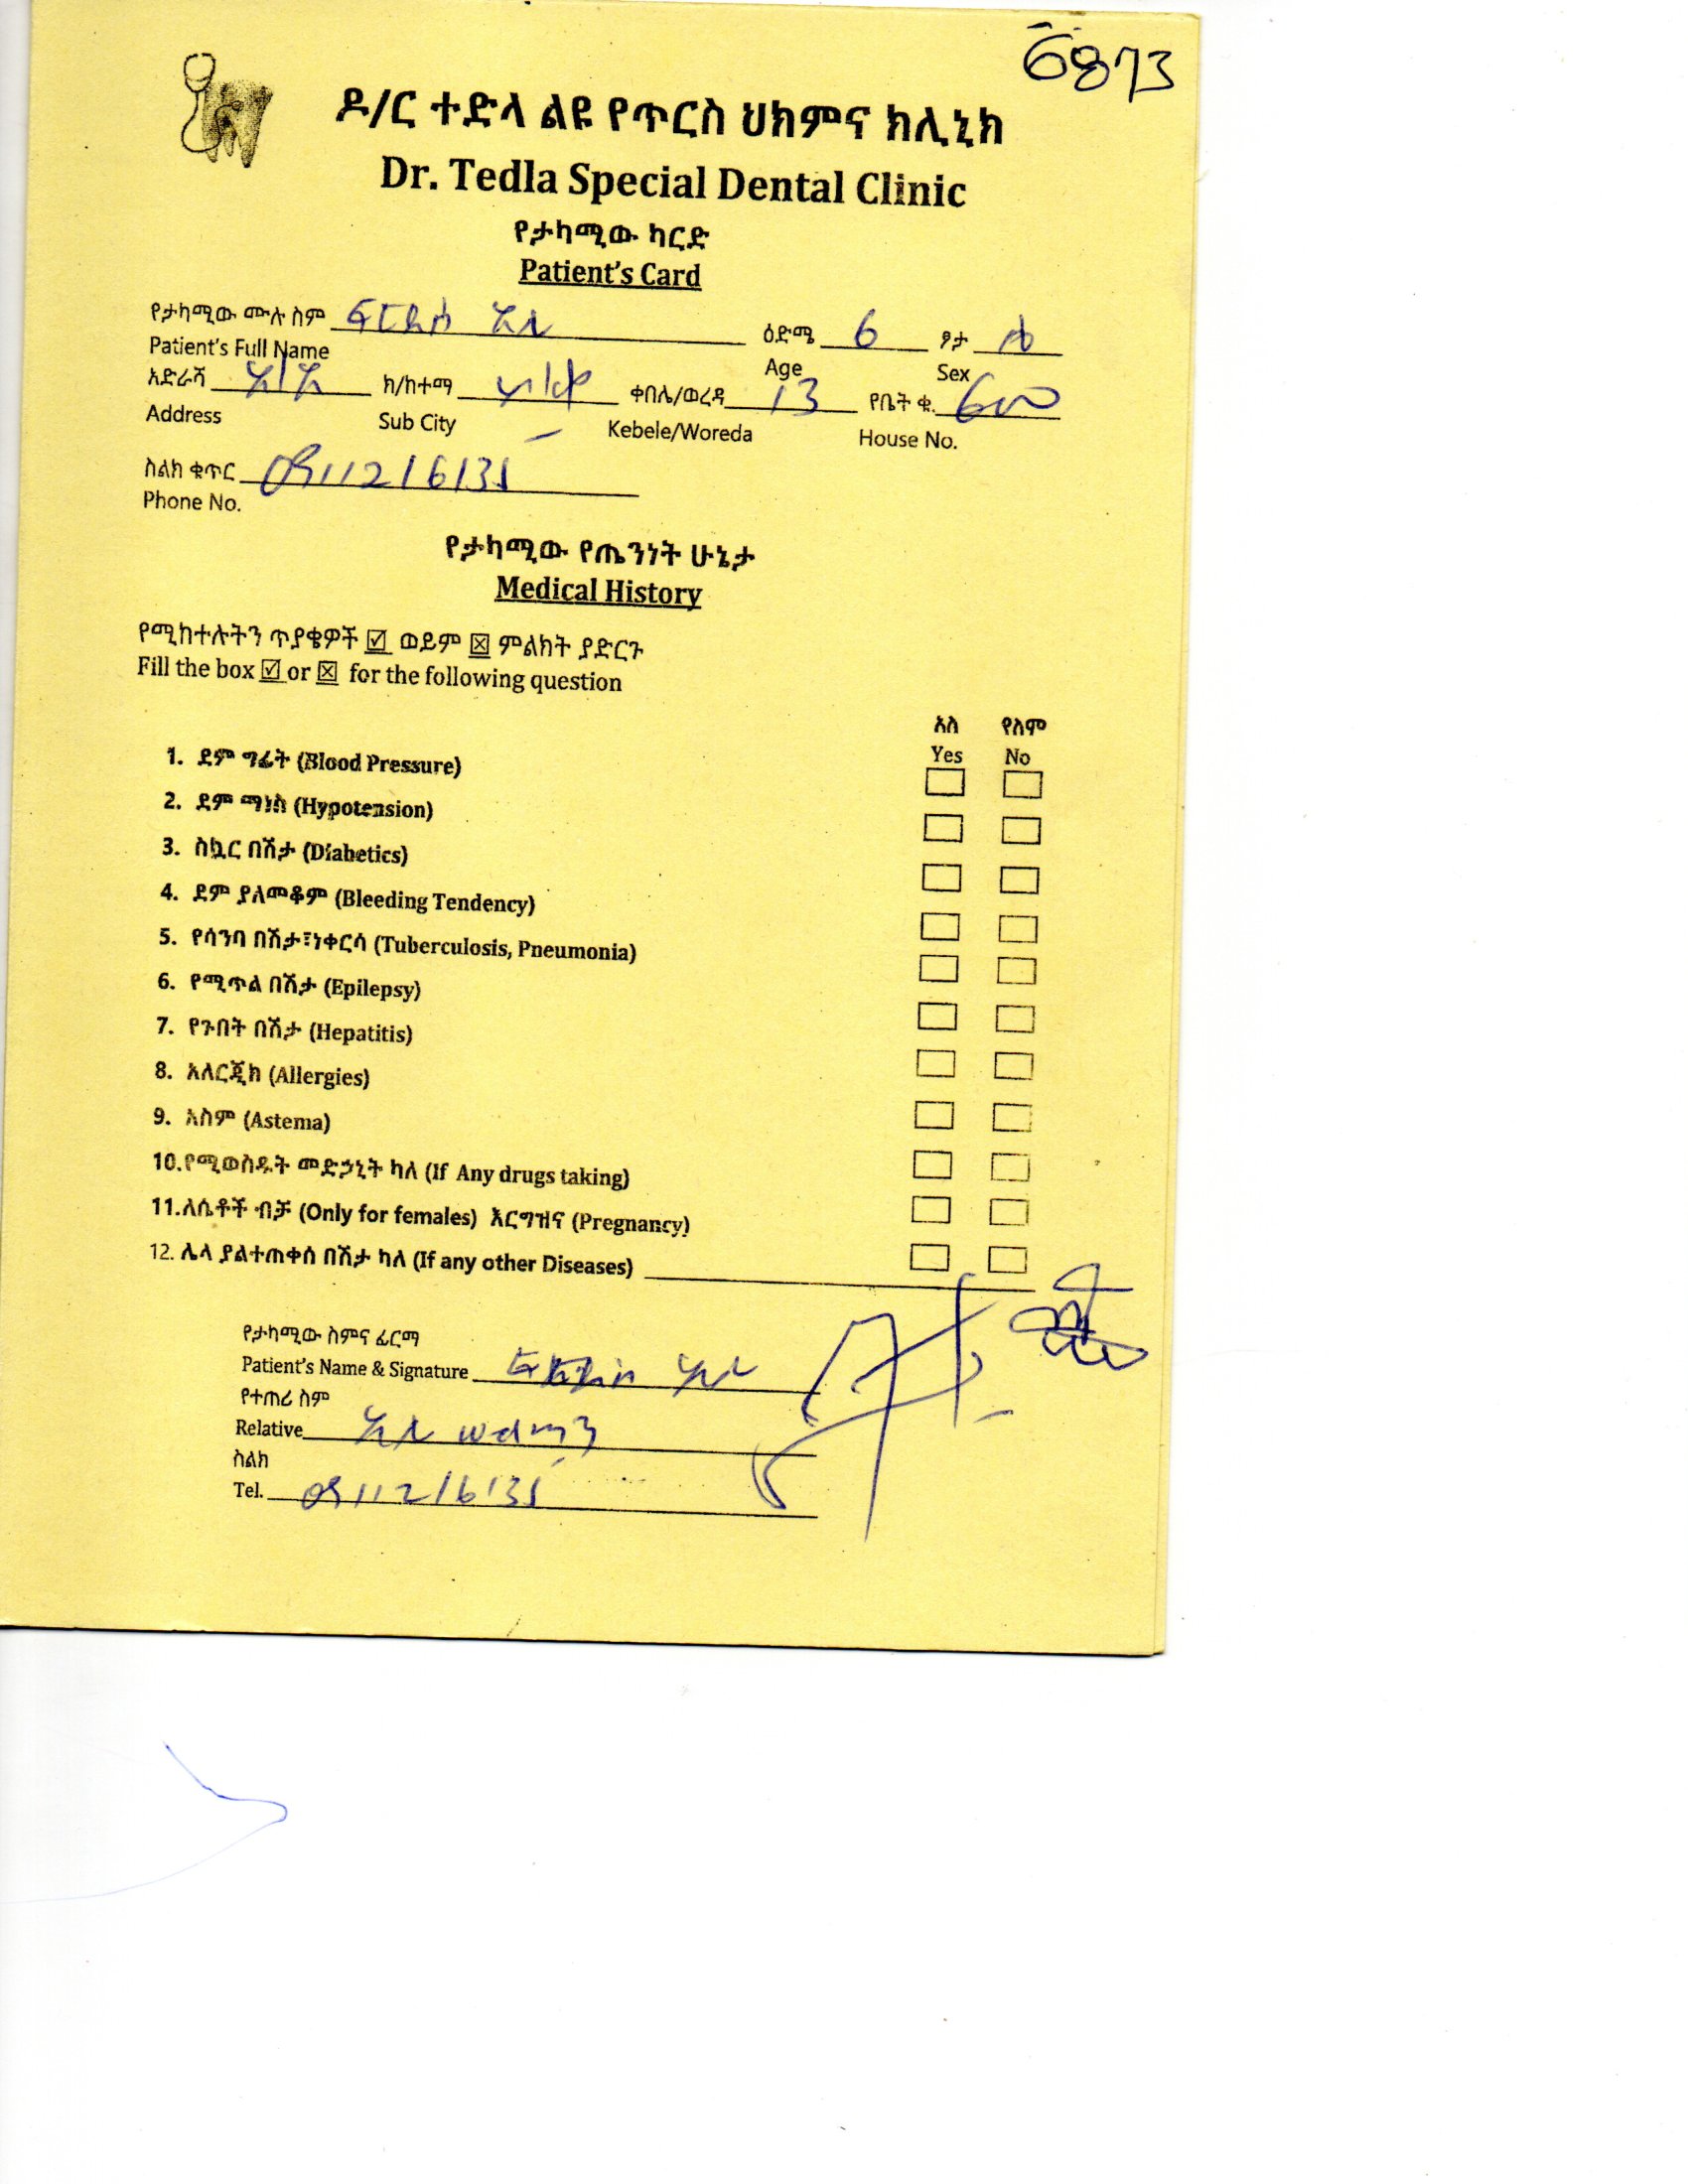 6873
ዶ/ር ተድላ ልዩ የጥርስ ህክምና ክሊኒክ
Dr. Tedla Special Dental Clinic
የታካሚው ካርድ
Patient's Card
የታካሚው ሙሉ ስም ዕድሜ 6 ፆታ ሴ
Patient's Full Name Age Sex
አድራሻ አ/አ ክ/ከተማ ቀበሌ/ወረዳ 13 የቤት ቁ.
Address Sub City Kebele/Woreda House No.
ስልክ ቁጥር
Phone No.
የታካሚው የጤንነት ሁኔታ
Medical History
የሚከተሉትን ጥያቄዎች ☑ ወይም ☒ ምልክት ያድርጉ
Fill the box ☑ or ☒ for the following question
አለ የለም
Yes No
1. ደም ግፊት (Blood Pressure)
2. ደም ማነስ (Hypotension)
3. ስኳር በሽታ (Diabetics)
4. ደም ያለመቆም (Bleeding Tendency)
5. የሳንባ በሽታ፣ነቀርሳ (Tuberculosis, Pneumonia)
6. የሚጥል በሽታ (Epilepsy)
7. የጉበት በሽታ (Hepatitis)
8. አለርጂክ (Allergies)
9. አስም (Astema)
10.የሚወስዱት መድኃኒት ካለ (If Any drugs taking)
11.ለሴቶች ብቻ (Only for females) እርግዝና (Pregnancy)
12. ሌላ ያልተጠቀሰ በሽታ ካለ (If any other Diseases)
የታካሚው ስምና ፊርማ
Patient's Name & Signature
የተጠሪ ስም
Relative
ስልክ
Tel.